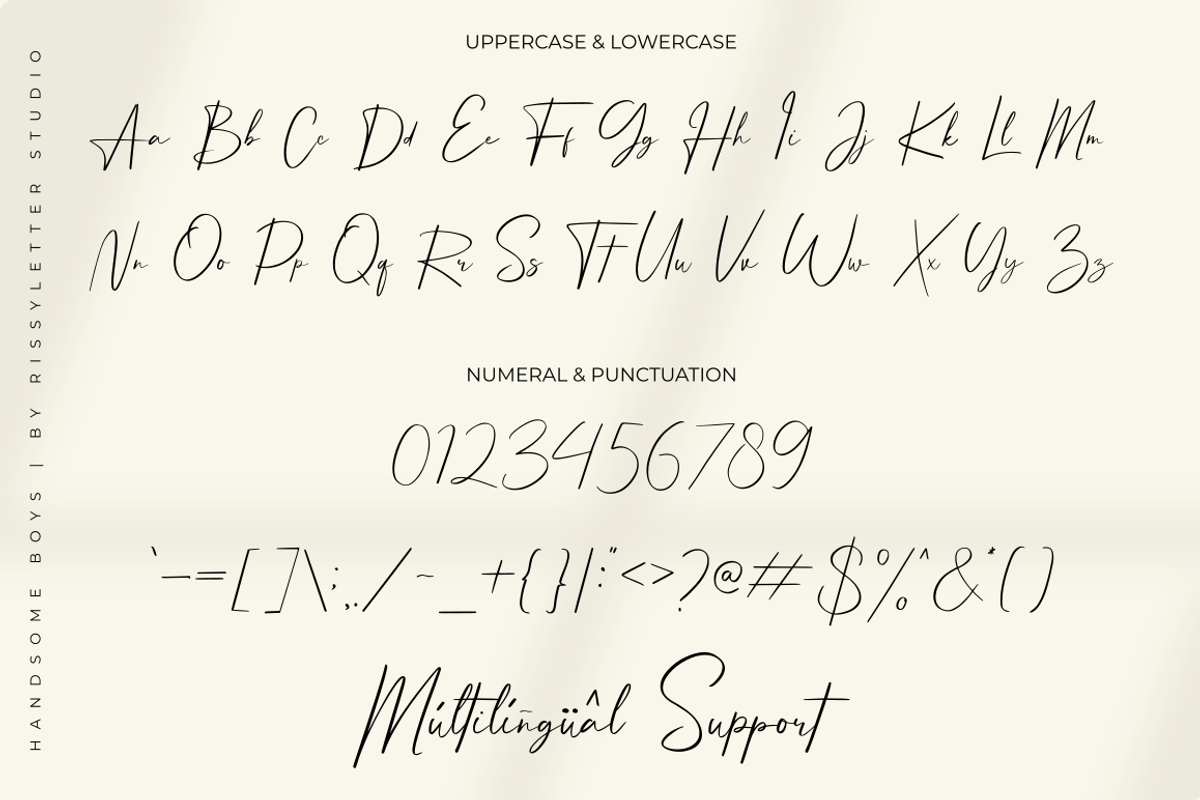 HANDSOME BOYS | BY RISSYLETTER STUDIO
UPPERCASE & LOWERCASE
Aa Bb Cc Dd Ee Ff Gg Hh Ii Jj Kk Ll Mm
Nn Oo Pp Qq Rr Ss Tt Uu Vv Ww Xx Yy Zz
NUMERAL & PUNCTUATION
0123456789
`-=[]\;,./~_+{}|:"<>?@#$%^&*()
Múltilíñgüâl Support